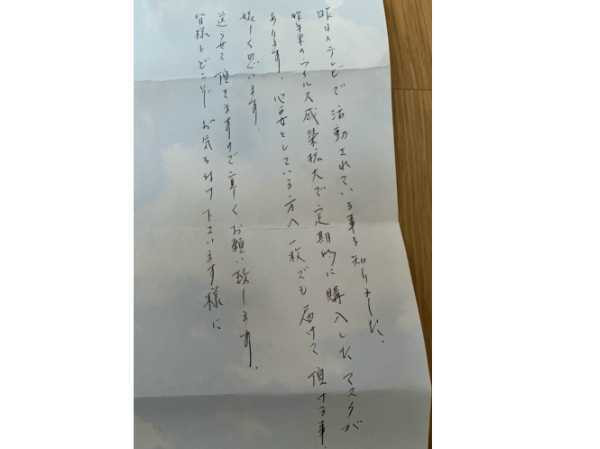 昨日テレビで活動されている事を知りました。
昨年来のウイルス感染拡大で定期的に購入したマスクが
あります。必要としている方へ一枚でも届けて頂ける事、
嬉しく思います。
送らせて頂きますので宜しくお願い致します。
皆様もどうぞお気を付け下さいます様に